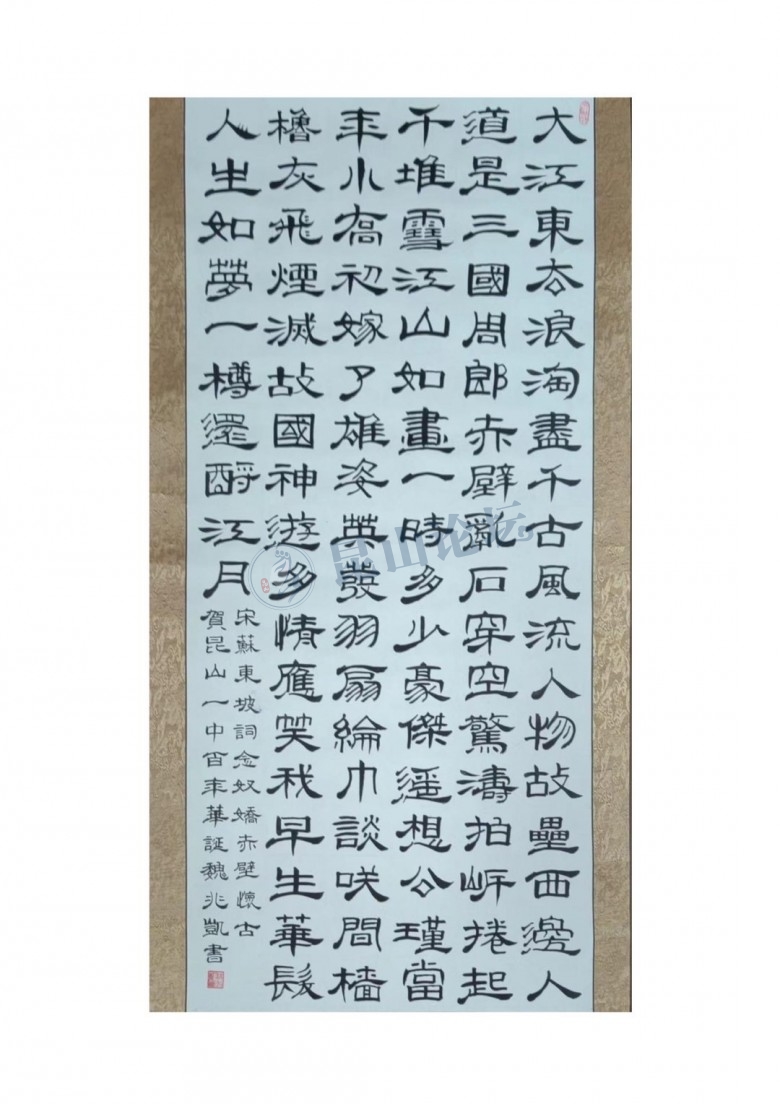 大江東去浪淘盡千古風流人物故壘西邊人
道是三國周郎赤壁亂石穿空驚濤拍岸捲起
千堆雪江山如畫一時多少豪傑遥想公瑾當
年小喬初嫁了雄姿英發羽扇綸巾談咲間檣
櫓灰飛煙滅故國神遊多情應笑我早生華髮
人生如夢一樽還酹江月
宋蘇東坡詞念奴嬌赤壁懷古
賀昆山一中百年華誕魏兆凱書
昆山论坛